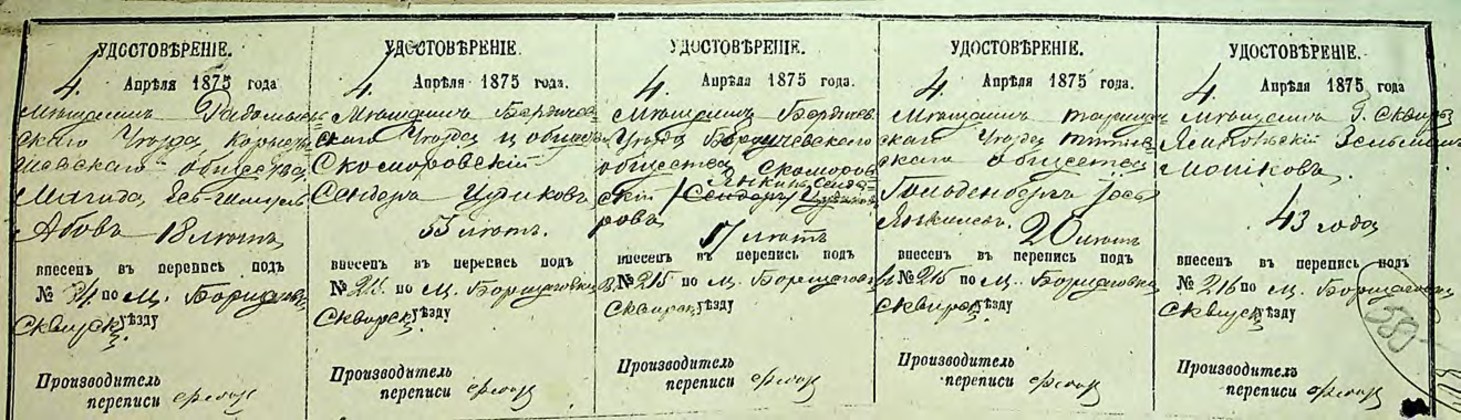 УДОСТОВѢРЕНІЕ.
4. Апрѣля 1875 года
Мѣщанинъ Радомысль-
скаго Уѣзда
общества,
Магида
Абовъ 18 лѣтъ
внесенъ въ перепись подъ
№ по м. Борщаговк
Сквирск. уѣзду
Производитель
переписи
УДОСТОВѢРЕНІЕ.
4. Апрѣля 1875 года.
Мѣщанинъ Бердичев-
скаго Уѣзда и общес
Скоморовскій
Сендеръ Цудиковъ
55 лѣтъ.
внесенъ въ перепись подъ
№ по м. Борщаговка
Сквирск. уѣзду
Производитель
переписи
УДОСТОВѢРЕНІЕ.
4. Апрѣля 1875 года.
Мѣщанинъ Бердичев
Уѣзда Бердичевскаго
общества Скоморов
скій Янкиль Сенде-
ровъ
17 лѣтъ
внесенъ въ перепись подъ
№ 215 по м. Борщаговк
Сквирск. уѣзду
Производитель
переписи
УДОСТОВѢРЕНІЕ.
4. Апрѣля 1875 года.
Мѣщанинъ Таращ
скаго Уѣзда
скаго общества
Гольденбергъ Іось
Янкилев. 20 лѣтъ
внесенъ въ перепись подъ
№ 215 по м. Борщаговка
Сквирск. уѣзду
Производитель
переписи
УДОСТОВѢРЕНІЕ.
4. Апрѣля 1875 года.
Мѣщанинъ Г. Сквиры
Зельман
Мошковъ.
43 года
внесенъ въ перепись подъ
№ 216 по м. Борщаговка
Сквирск. уѣзду
580
Производитель
переписи